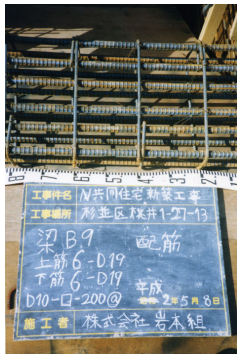 工事件名 N共同住宅新築工事
工事場所 杉並区桜井1-27-13
梁 B.9 配筋
上筋 6-D19
下筋 6-D19
D10-□-200@
平成 2年5月8日
施工者 株式会社 岩本組